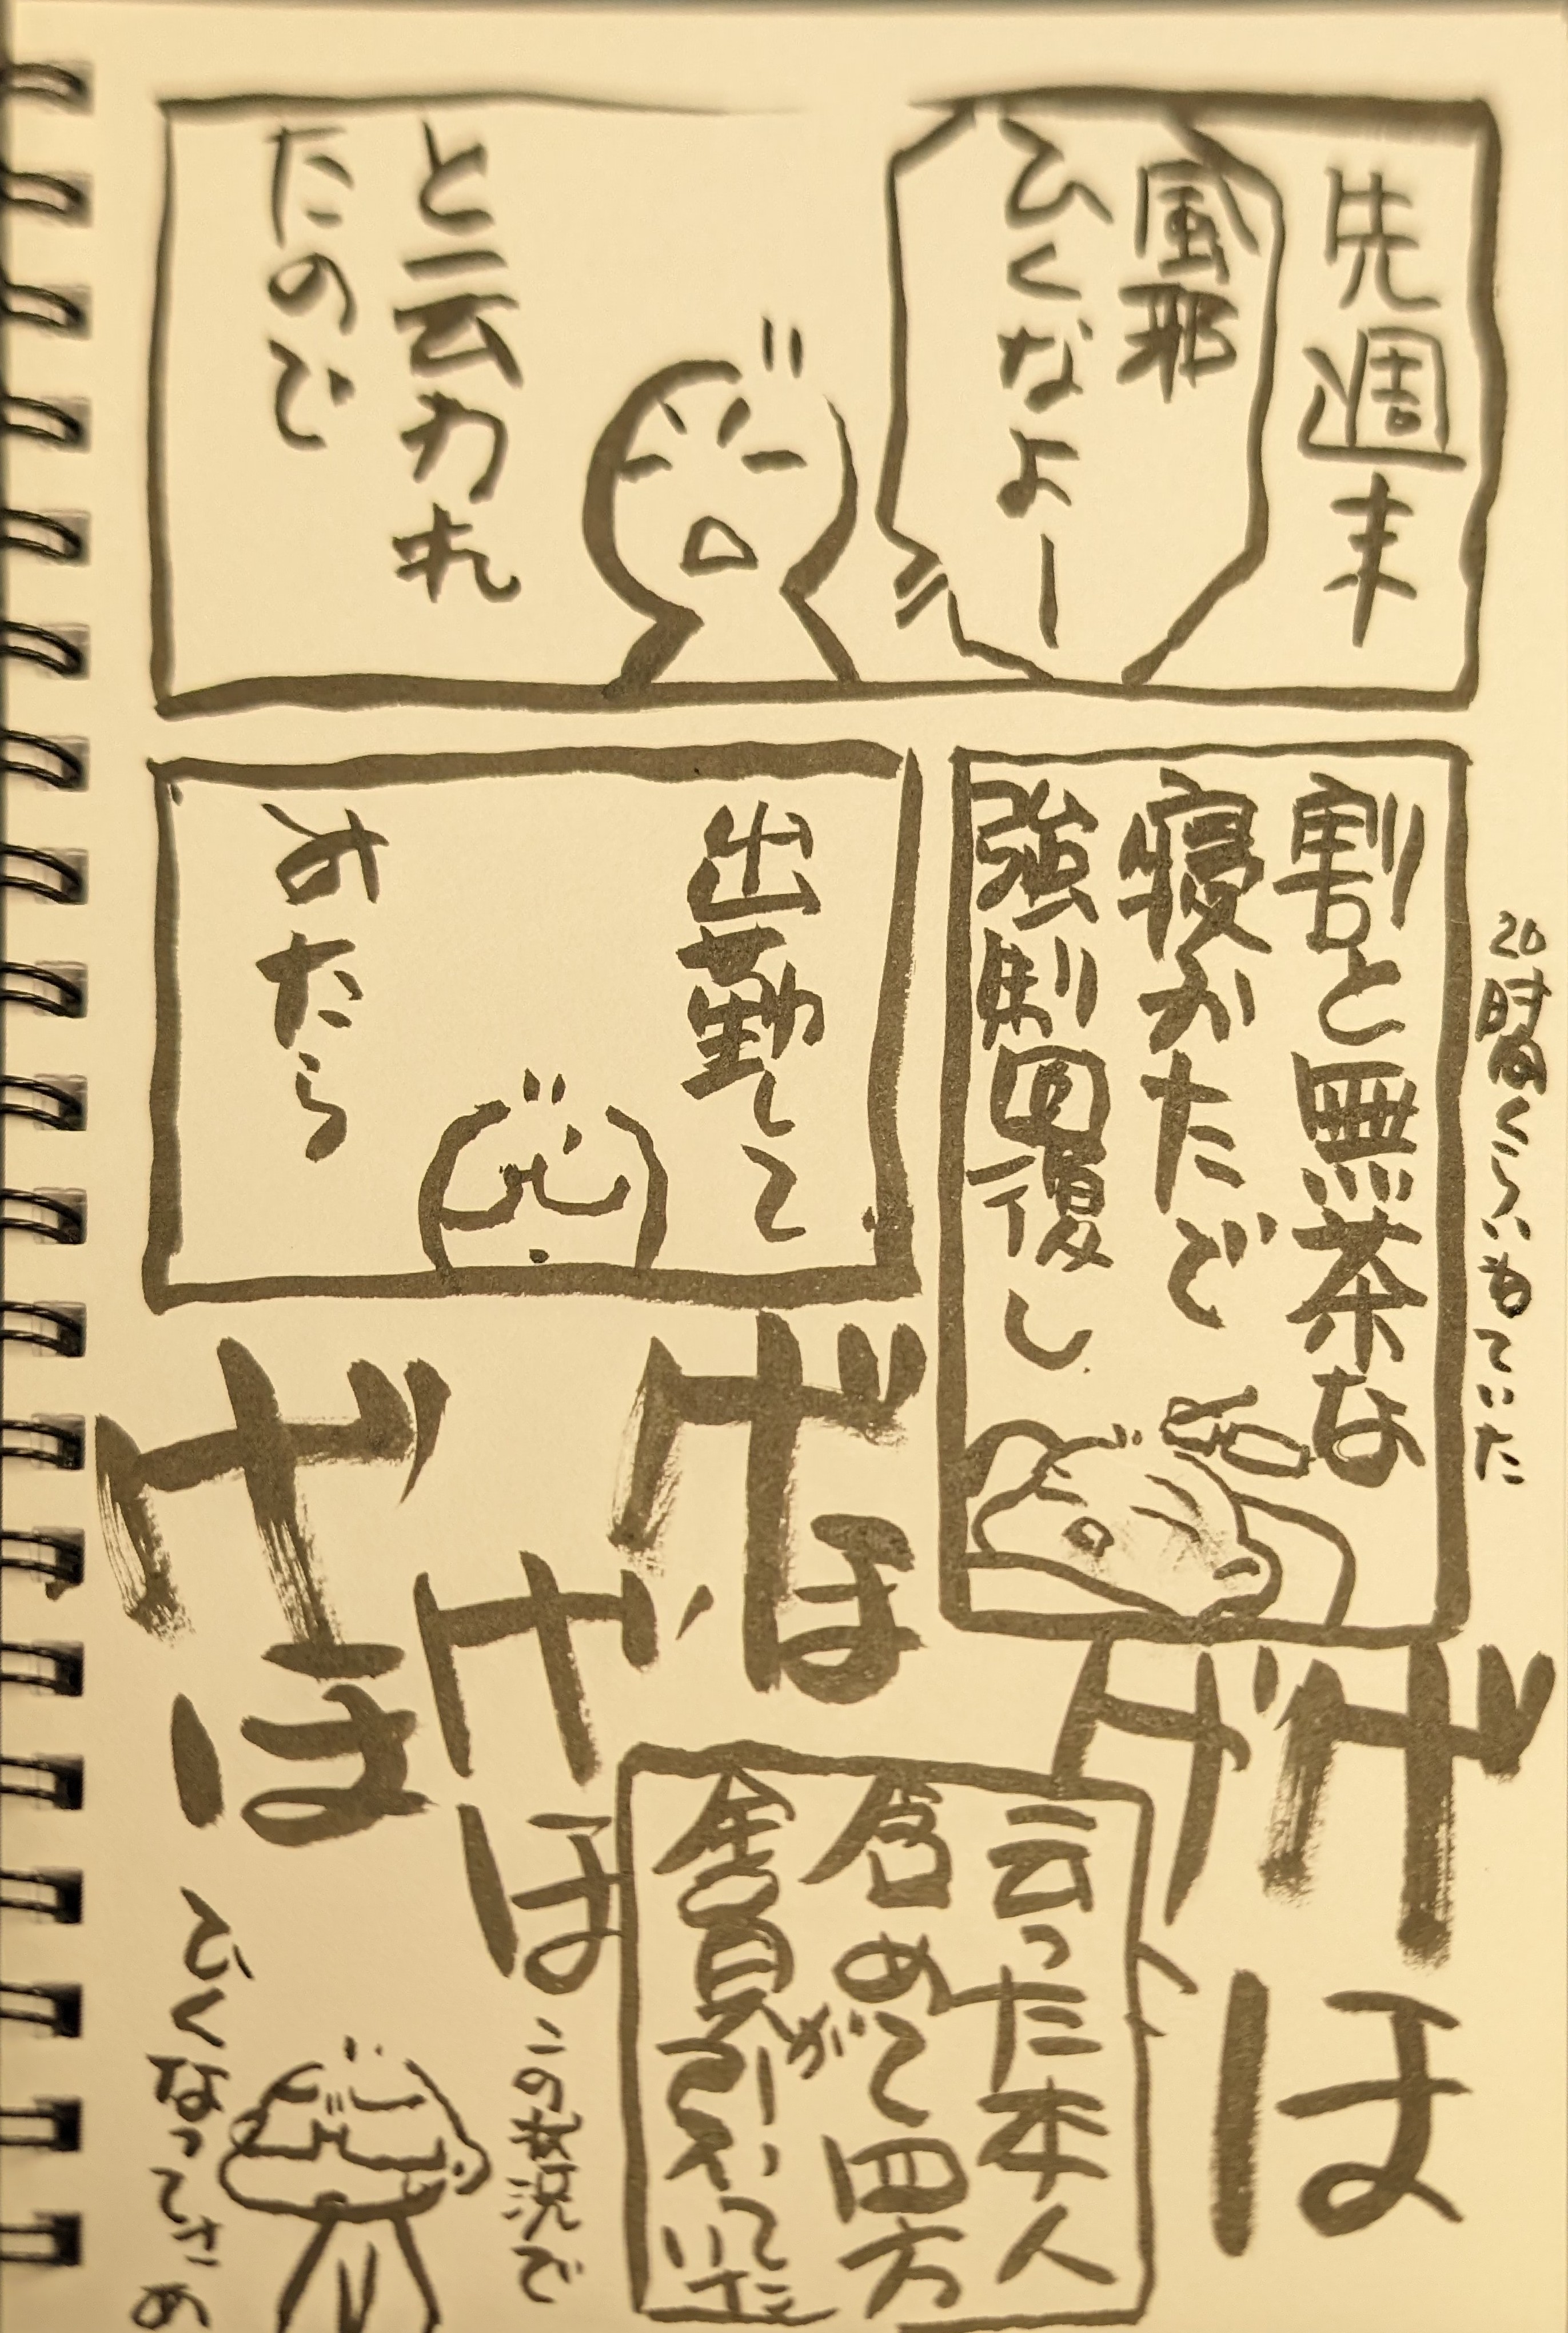 先週末
風邪
ひくなよー
と云われ
たので
20時間くらいねていた
割と無茶な
寝かたで
強制回復し
出勤して
みたら
げほ
げ
げほ
げほ
げほ
云った本人
含めて四方
全員が引いて
いた
この状況で
ひくなってさこめ